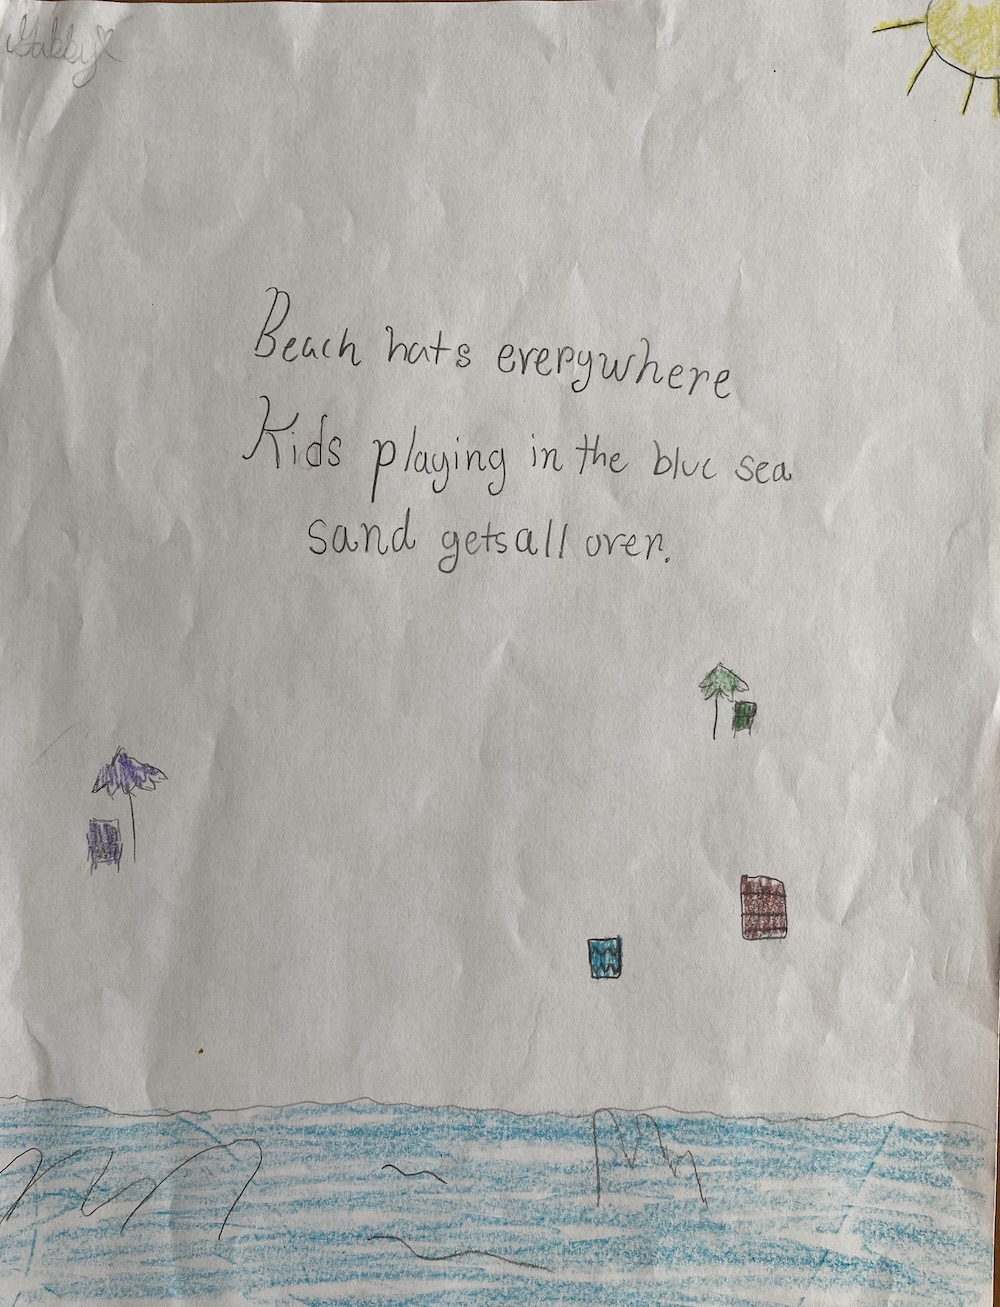 Gabby
Beach hats everywhere
Kids playing in the blue sea
sand gets all over.